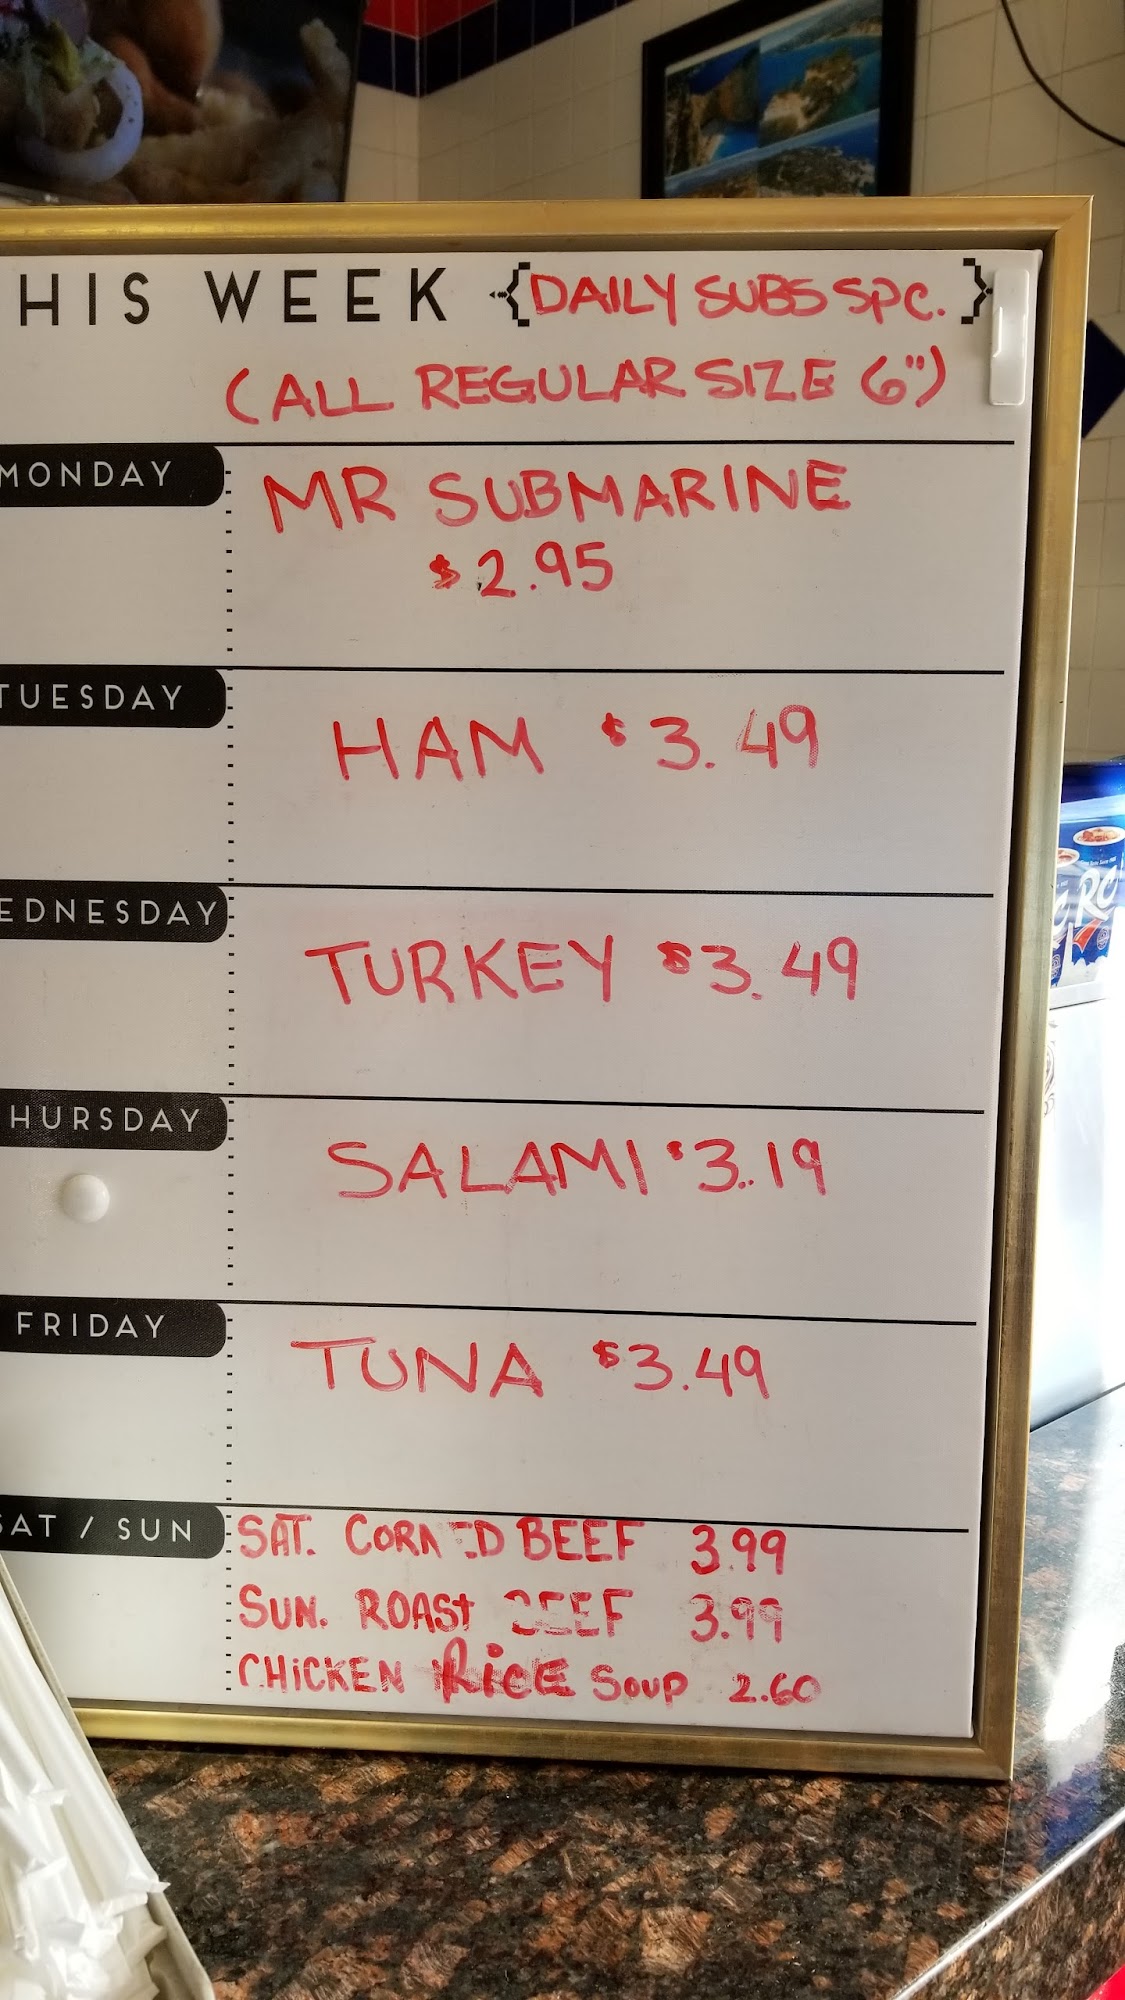 HIS WEEK {DAILY SUBS SPC.}
(ALL REGULAR SIZE 6")
MONDAY
MR SUBMARINE
$2.95
TUESDAY
HAM $3.49
EDNESDAY
TURKEY $3.49
HURSDAY
SALAMI $3.19
FRIDAY
TUNA $3.49
SAT / SUN
SAT. CORNED BEEF 3.99
SUN. ROAST BEEF 3.99
CHICKEN RICE SOUP 2.60
RC